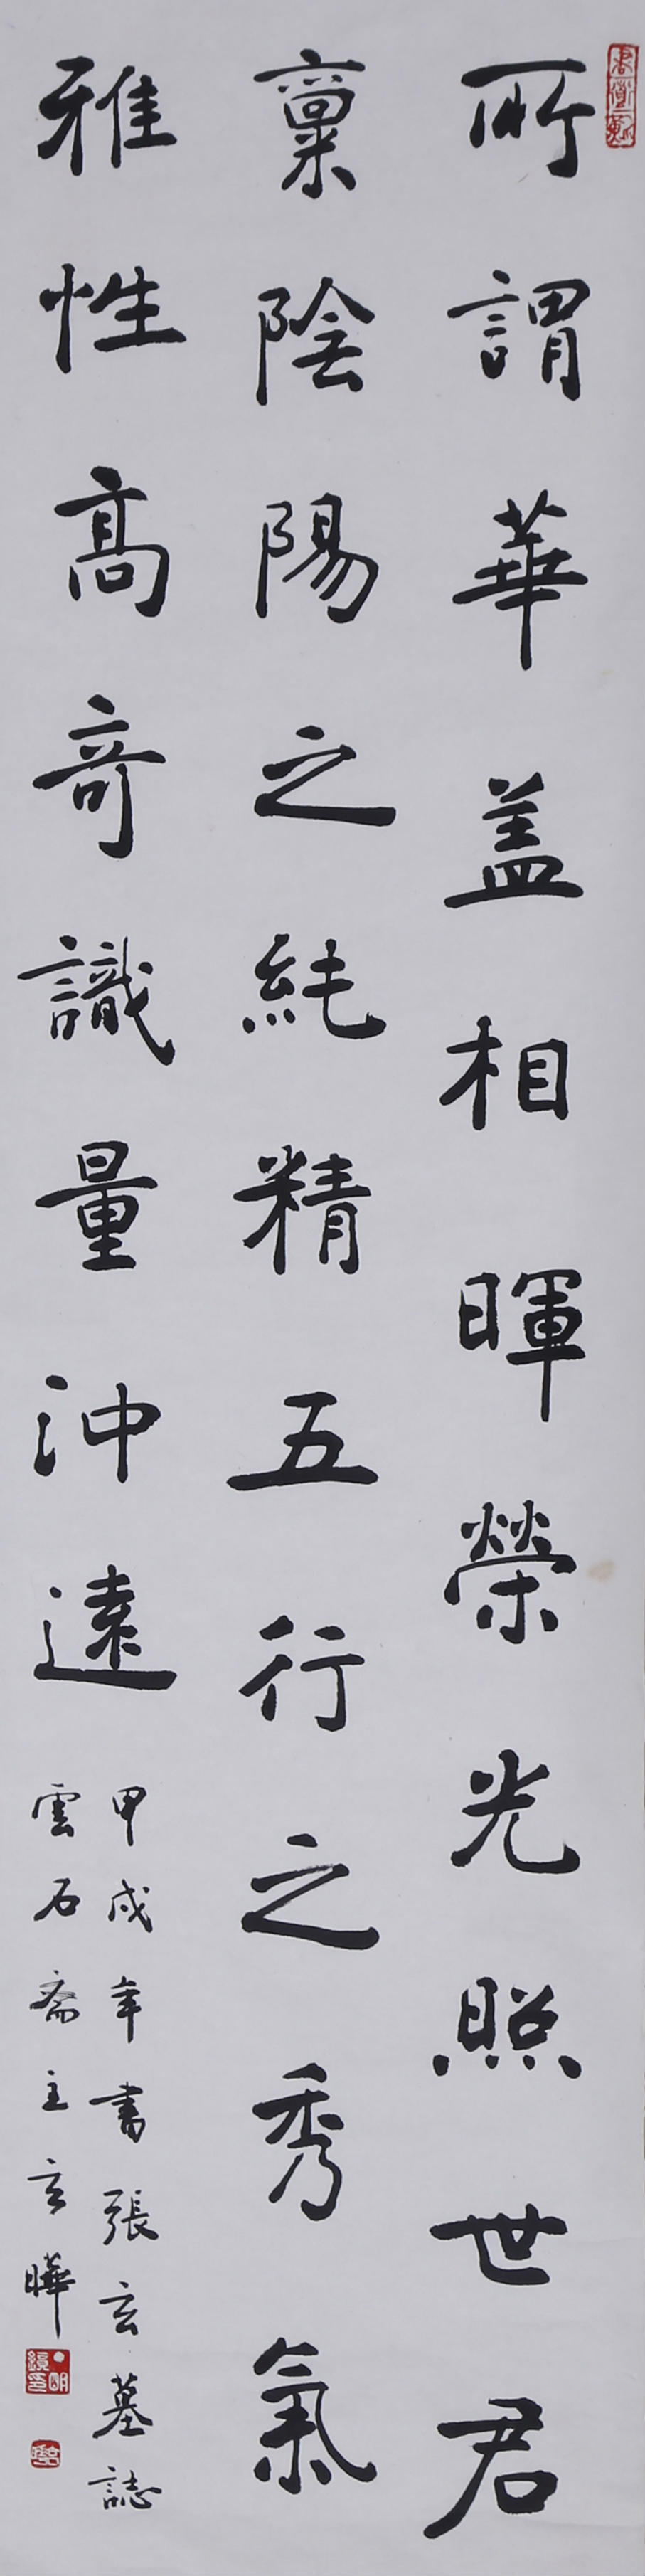 所謂華盖相暉榮光照世君
稟陰陽之純精五行之秀氣
雅性高奇識量沖遠
甲戌年書張玄墓誌
雲石齋主玄曄